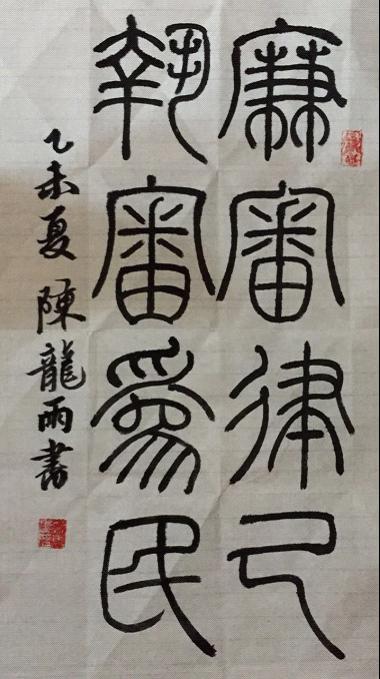 廉審律己
執審爲民
乙未夏 陳龍雨書